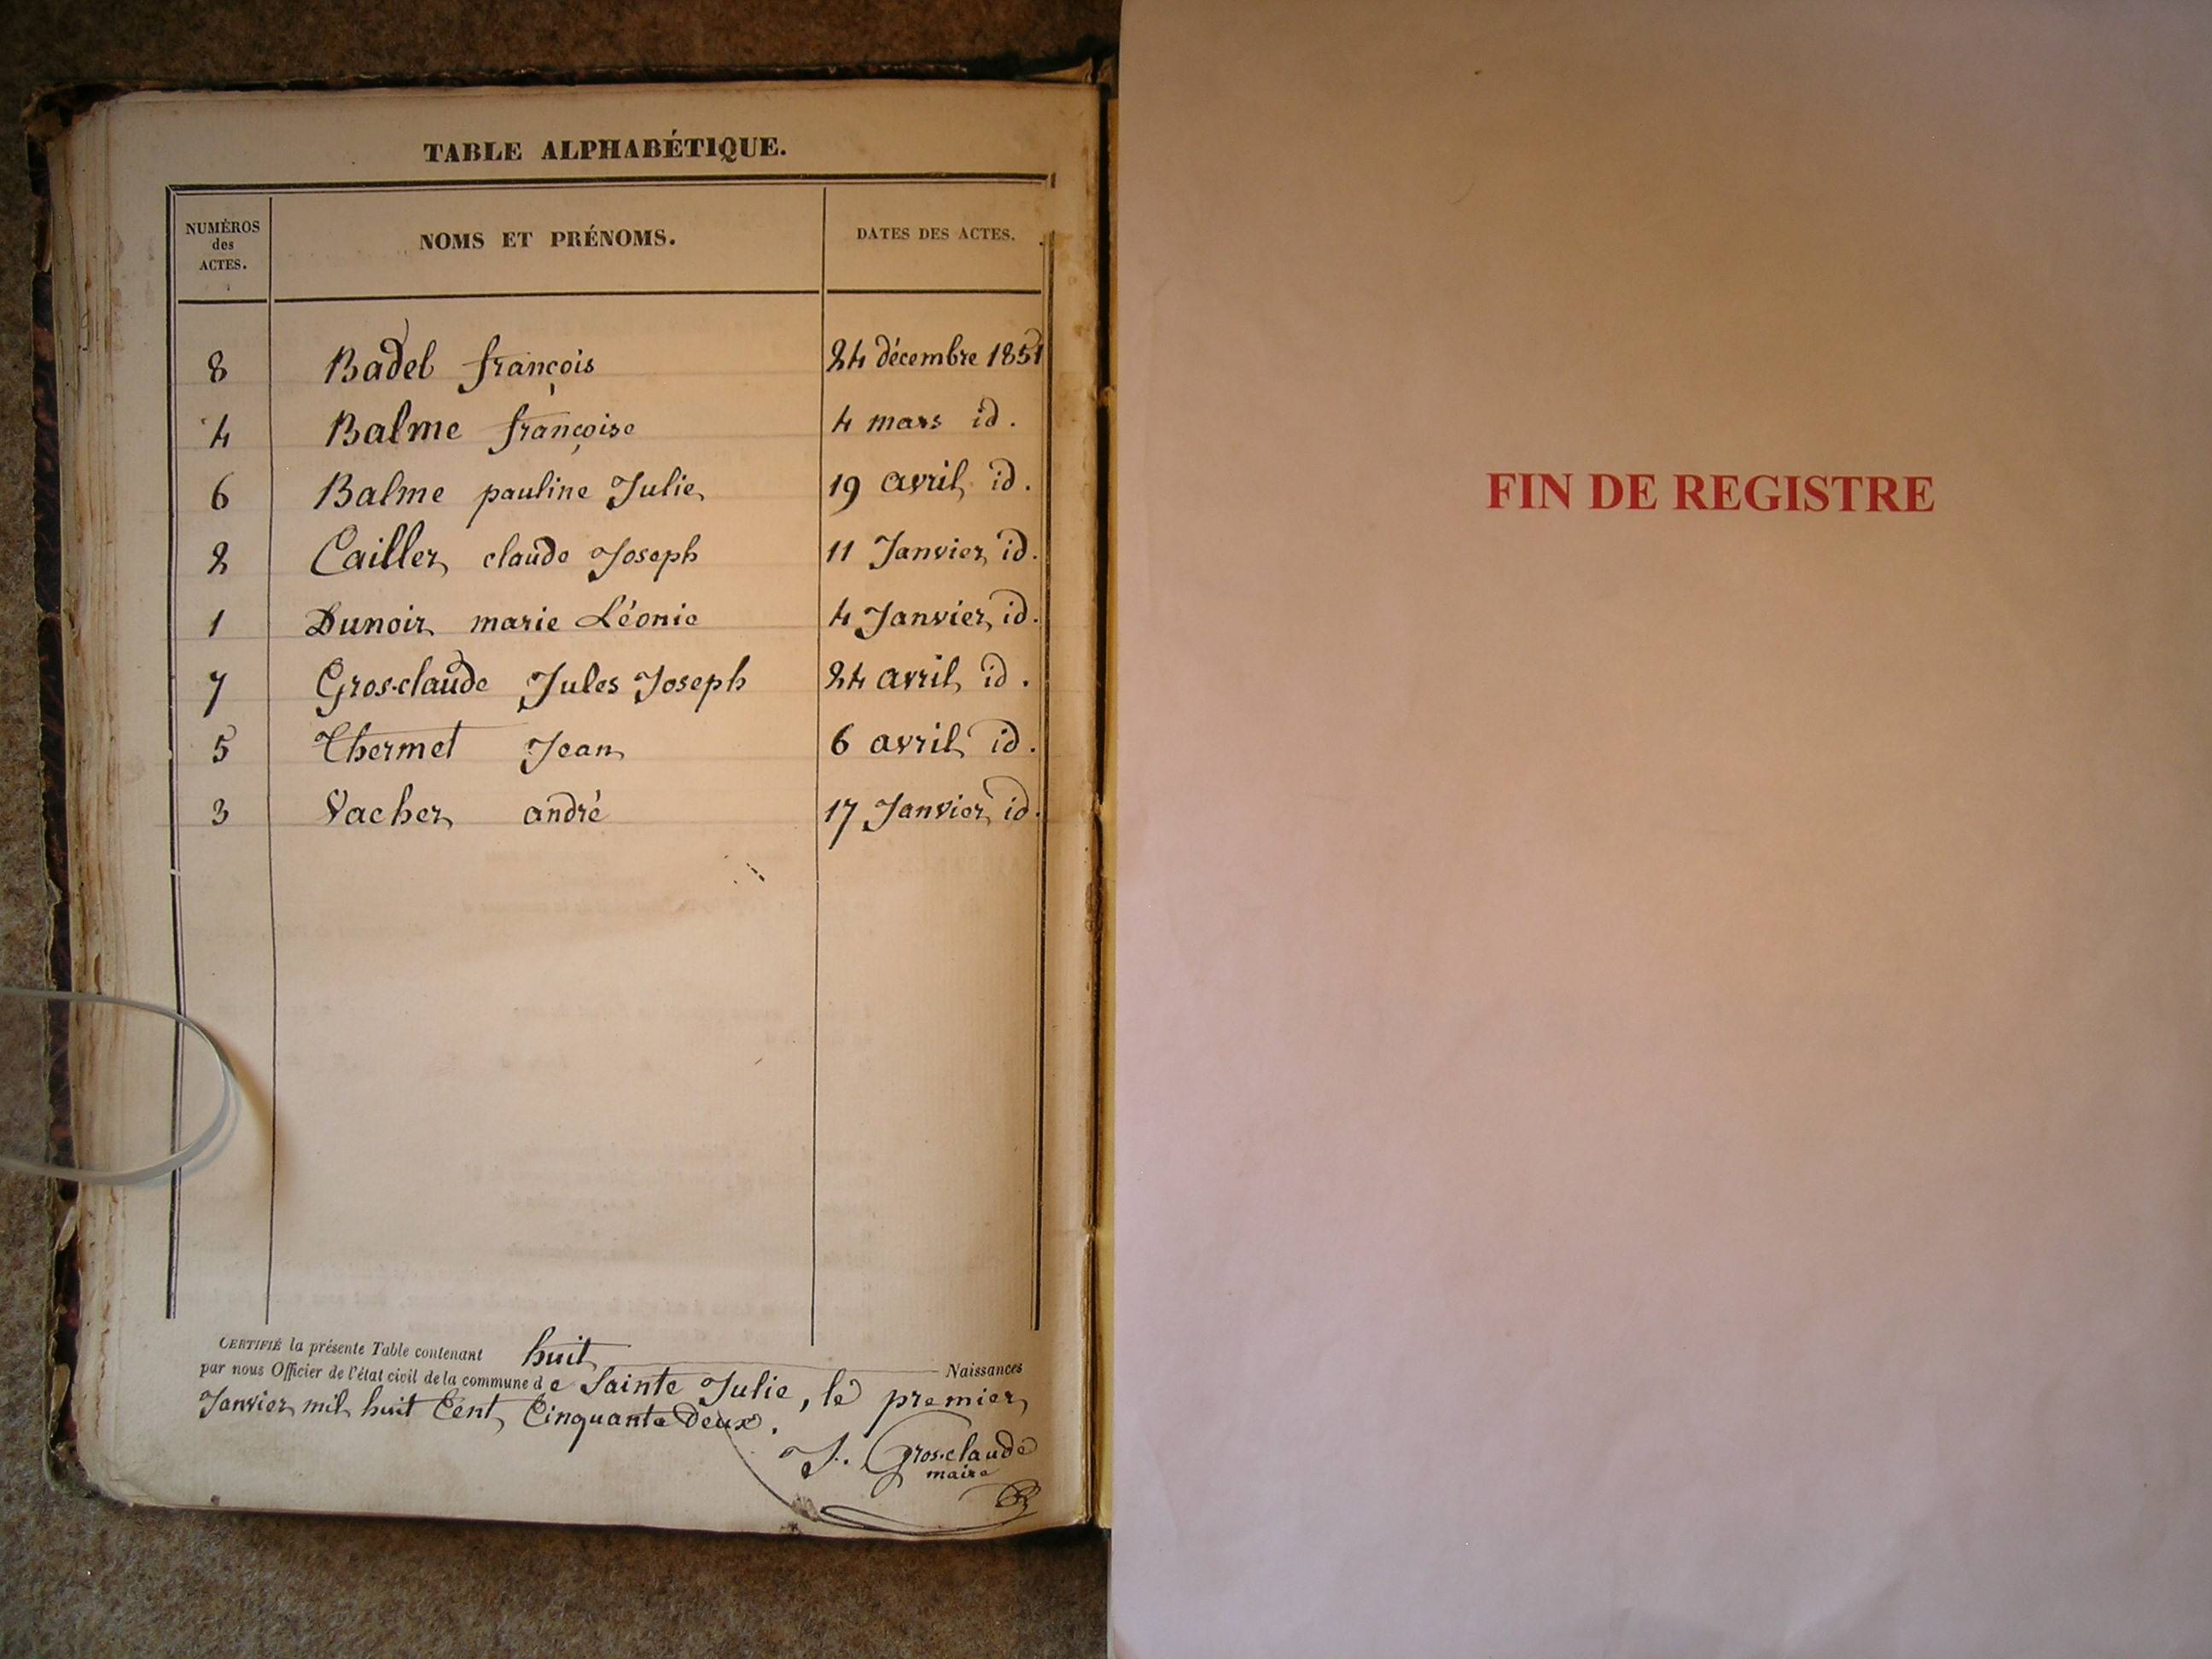 TABLE ALPHABÉTIQUE.
NUMÉROS des ACTES. NOMS ET PRÉNOMS. DATES DES ACTES.
8 Badel françois 24 décembre 1851
4 Balme françoise 4 mars id.
6 Balme pauline Julie 19 avril id.
2 Cailler claude Joseph 11 Janvier id.
1 Dunoir marie Léonie 4 Janvier id.
7 Gros-claude Jules Joseph 24 avril id.
5 Thermet Jean 6 avril id.
3 Vacher andré 17 Janvier id.
CERTIFIÉ la présente Table contenant huit Naissances
par nous Officier de l'état civil de la commune de Sainte Julie, le premier
Janvier mil huit Cent Cinquante Deux.
J. Gros-claude
maire
FIN DE REGISTRE